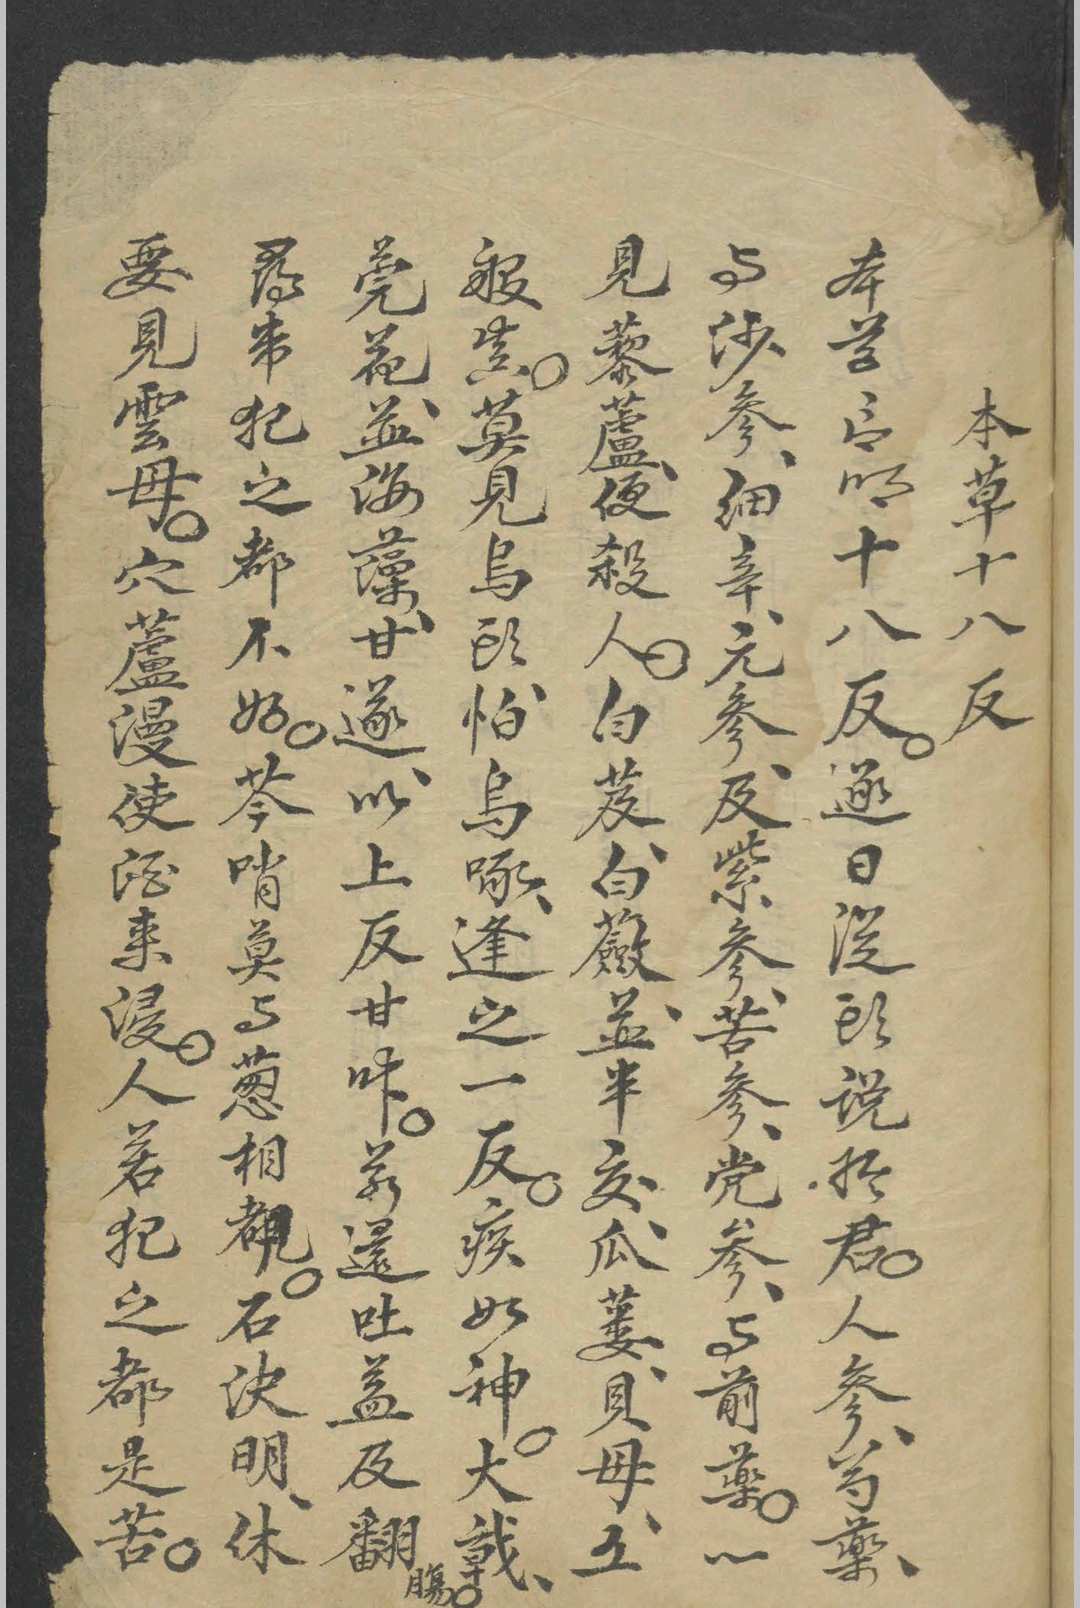 本草十八反
本草言明十八反。逐日從頭說於君。人參、芍藥、
与沙參、細辛、元參、及紫參、苦參、党參、与前藥。一
見藜蘆、便殺人。白芨、白薇、並半夏、瓜蔞、貝母、五
般真。莫見烏頭、怕烏啄、逢之一反。疾如神。大戟、
芫花、並海藻、甘遂、以上反甘草。若還吐蓋及翻腸。
尋常犯之都不好。苓哨莫与蔥相覩。石決明、休
要見雲母。穴蘆漫使酒来浸。人若犯之都是苦。